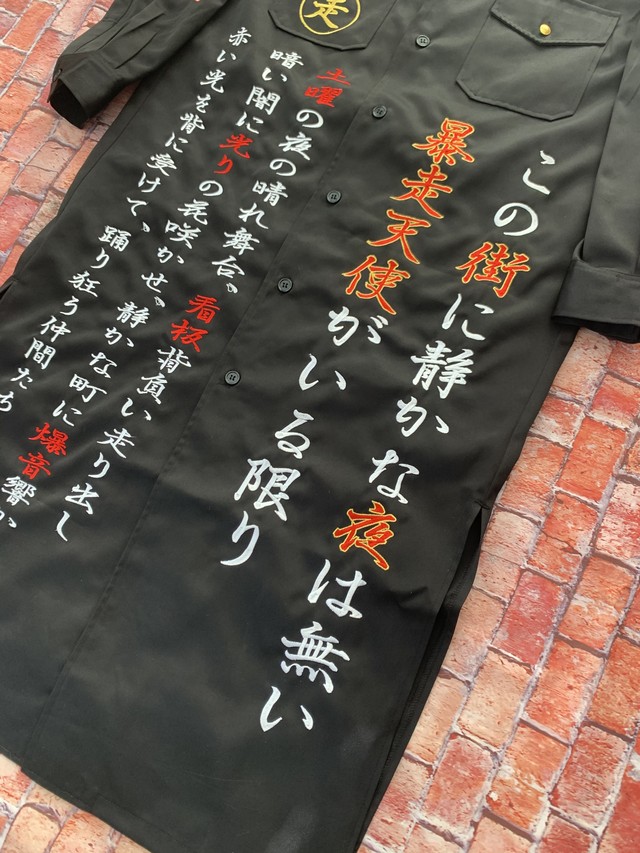 走
この街に静かな夜は無い
暴走天使がいる限り
土曜の夜の晴れ舞台、看板背負い走り出し
暗い闇に光りの花咲かせ、静かな町に爆音響か
赤い光を背に受けて、踊り狂う仲間たち